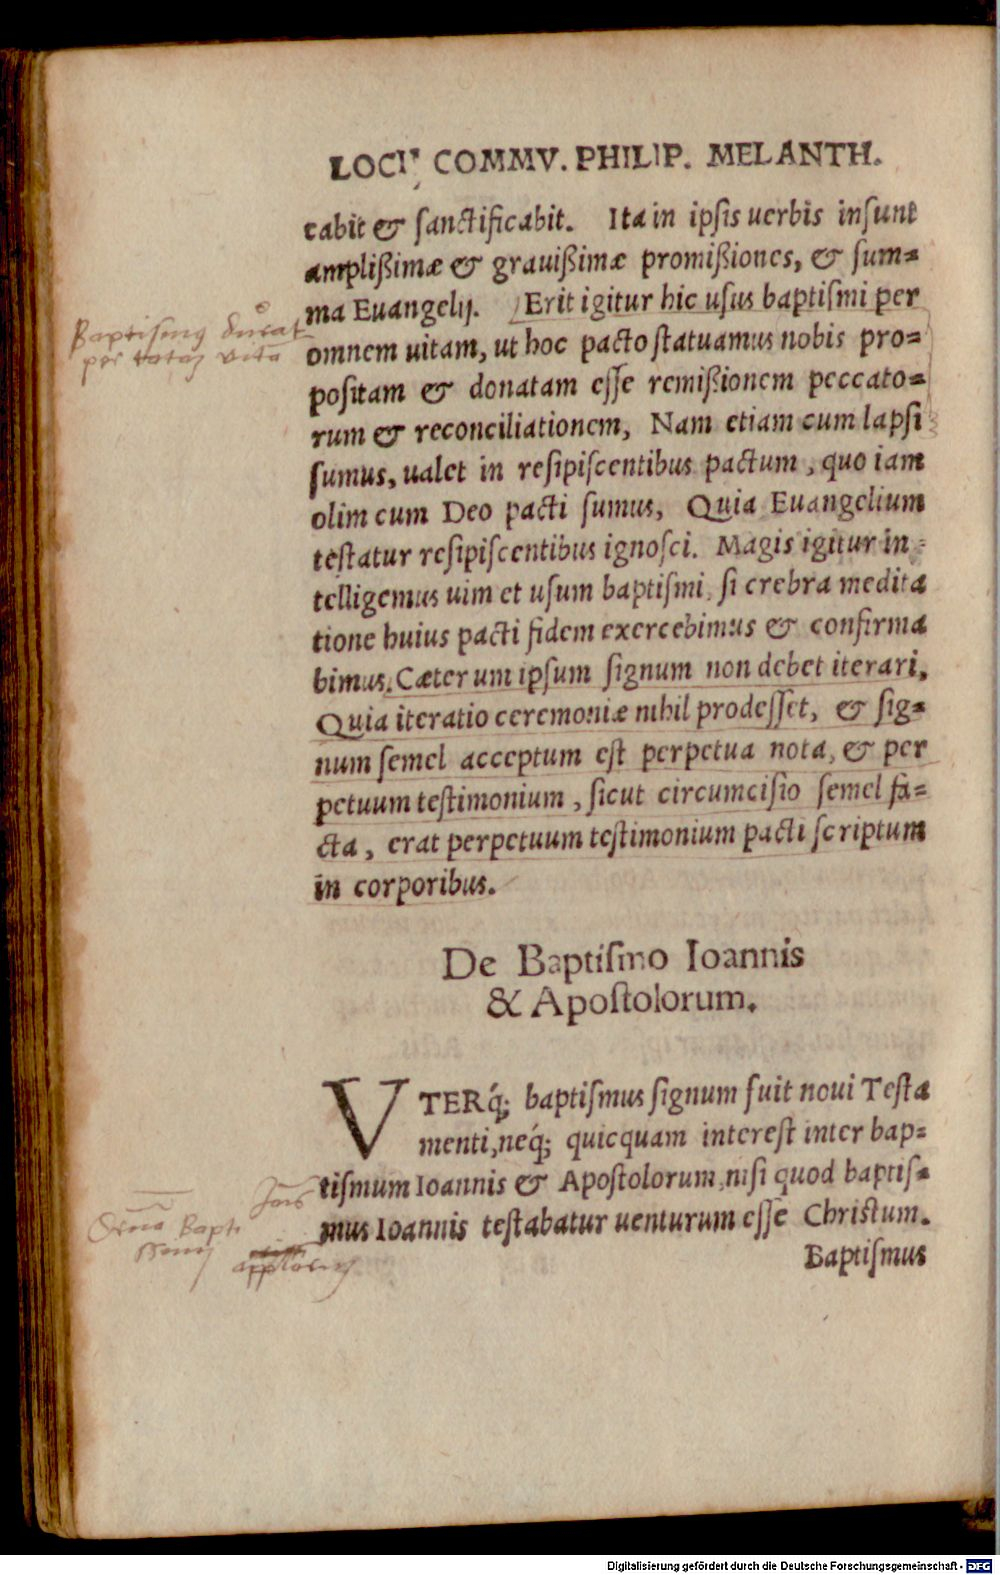 LOCI COMMV. PHILIP. MELANTH.
cabit & ſanctificabit. Ita in ipſis uerbis inſunt
ampliſſimæ & grauiſſimæ promiſſiones, & ſum=
ma Euangelij. Erit igitur hic uſus baptiſmi per
omnem uitam, ut hoc pacto ſtatuamus nobis pro=
poſitam & donatam eſſe remiſſionem peccato=
rum & reconciliationem, Nam etiam cum lapſi
ſumus, ualet in reſipiſcentibus pactum, quo iam
olim cum Deo pacti ſumus, Quia Euangelium
teſtatur reſipiſcentibus ignoſci. Magis igitur in=
telligemus uim et uſum baptiſmi, ſi crebra medita
tione huius pacti fidem exercebimus & confirma
bimus. Cæterum ipſum ſignum non debet iterari,
Quia iteratio ceremoniæ nihil prodeſſet, & ſig=
num ſemel acceptum eſt perpetua nota, & per
petuum teſtimonium, ſicut circumciſio ſemel fa=
cta, erat perpetuum teſtimonium pacti ſcriptum
in corporibus.
Baptiſmus durat
per totam vita
De Baptiſmo Ioannis
& Apoſtolorum.
VTERq́; baptiſmus ſignum fuit noui Teſta
menti, neq́; quicquam intereſt inter bap=
tiſmum Ioannis & Apoſtolorum, niſi quod baptiſ=
mus Ioannis teſtabatur uenturum eſſe Chriſtum.
Baptiſmus
Bapti
Digitalisierung gefördert durch die Deutsche Forschungsgemeinschaft - DFG